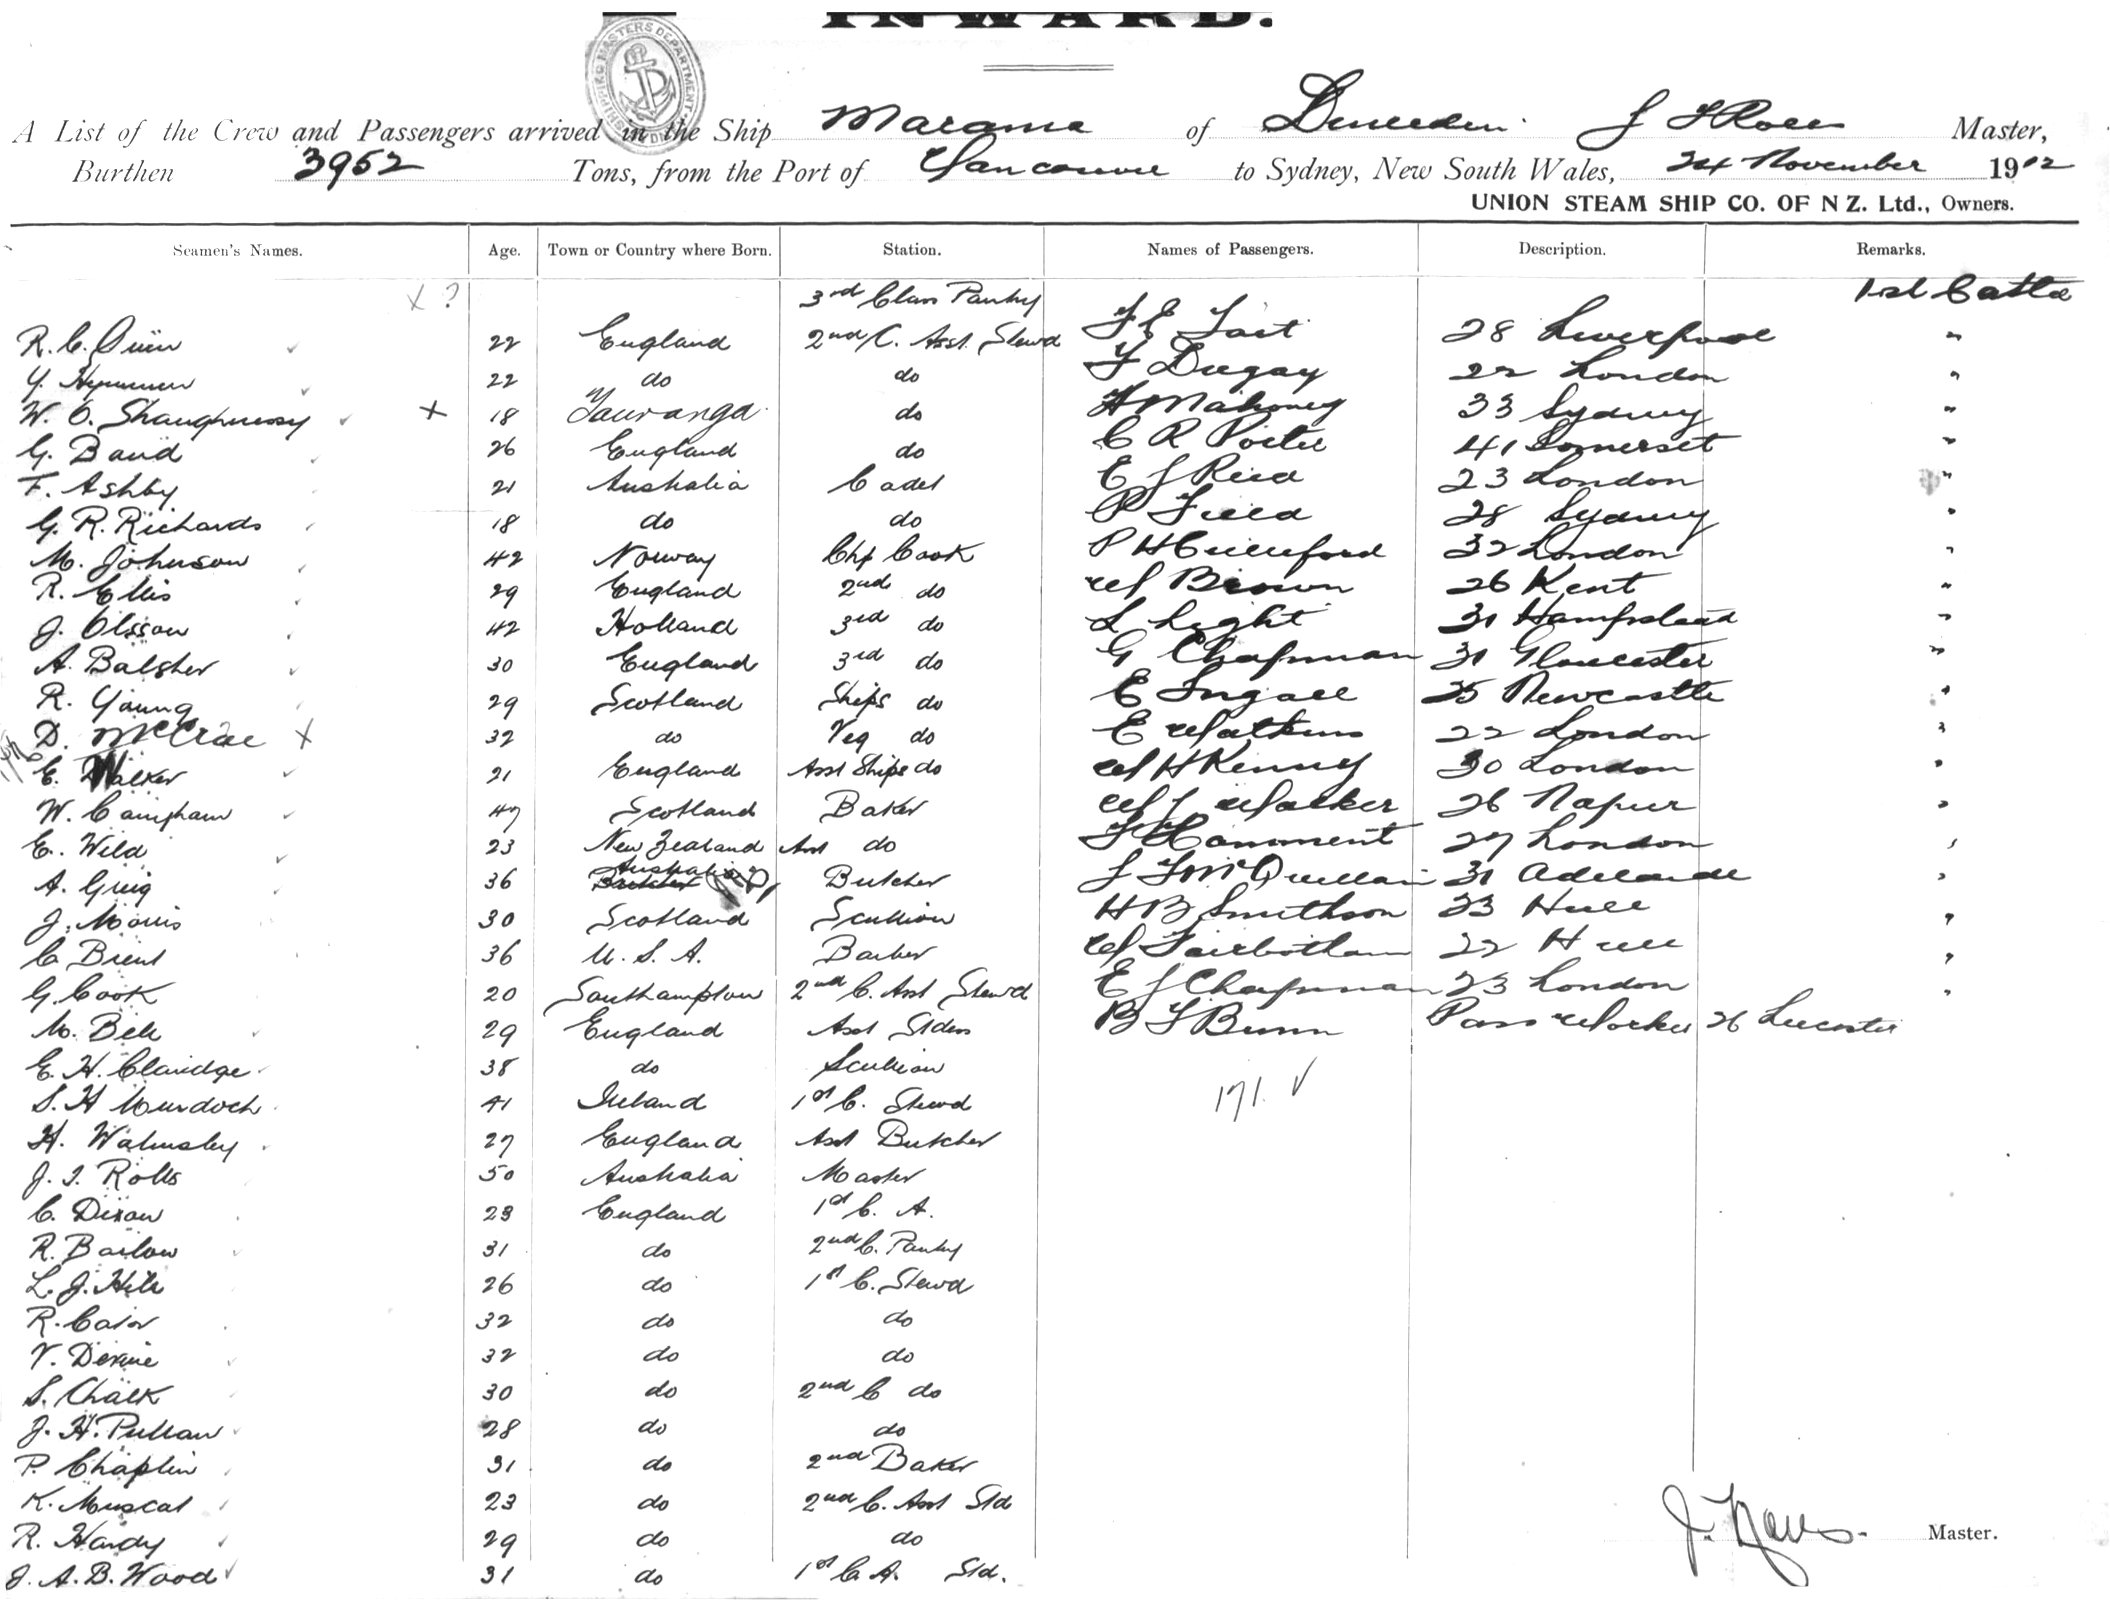 INWARD.
SHIPPING MASTERS DEPARTMENT
A List of the Crew and Passengers arrived in the Ship Marama of Dunedin J I Rolls Master,
Burthen 3952 Tons, from the Port of Vancouver to Sydney, New South Wales, 24 November 1912
UNION STEAM SHIP CO. OF N Z. Ltd., Owners.
Seamen's Names. Age. Town or Country where Born. Station. Names of Passengers. Description. Remarks.
x ? 3rd Class Pantry
R. C. 22 England 2nd C. Asst. Stewd F E 28 Liverpool
Y. 22 do do F Dugay 22 London "
W. O. Shaughnessy x 18 Tauranga do H Mahoney 33 Sydney "
G. Band 26 England do C R Porter 41 Somerset "
F. Ashby 21 Australia Cadet E J Reid 23 London "
G. R. Richards 18 do do P Field 28 Sydney "
M. Johnson 42 Norway Chf Cook P H 32 London "
R. Ellis 29 England 2nd do W Brown 26 Kent "
J. Olsson 42 Holland 3rd do L Light 31 Hampstead "
A. Balsher 30 England 3rd do G Chapman 31 Gloucester "
R. Young 29 Scotland Ships do E 25 Newcastle "
D. McCrae x 32 do Veg do E Watkins 22 London "
E. Walker 21 England Asst Ships do W H Kenny 30 London "
W. 47 Scotland Baker W J Walker 26 Napier "
E. Wild 23 New Zealand Asst do F Hamment 27 London "
A. Greig 36 Australia Butcher J F 31 Adelaide "
J. Morris 30 Scotland Scullion H B Smithson 23 Hull "
C Brent 36 U. S. A. Barber W 22 Hull "
G. Cook 20 Southampton 2nd C. Asst Stewd E J Chapman 23 London "
M. Bell 29 England Asst Stdess B F Bunn Pass Worker 26 Leicester
E. H. Claridge 38 do Scullion
S. H Murdoch 41 Ireland 1st C. Stewd 171. √
H. Walmsley 27 England Asst Butcher
J. I. Rolls 50 Australia Master
C. Dixon 23 England 1st C. A.
R. Barlow 31 do 2nd C. Pantry
L. J. Hill 26 do 1st C. Stewd
R. Cator 32 do do
V. Devine 32 do do
S. Chalk 30 do 2nd C do
J. H. Pullan 28 do do
P. Chaplin 31 do 2nd Baker
K. Muscat 23 do 2nd C. Asst Std
R. Hardy 29 do do Master.
J. A. B. Wood 31 do 1st C. A. Std.